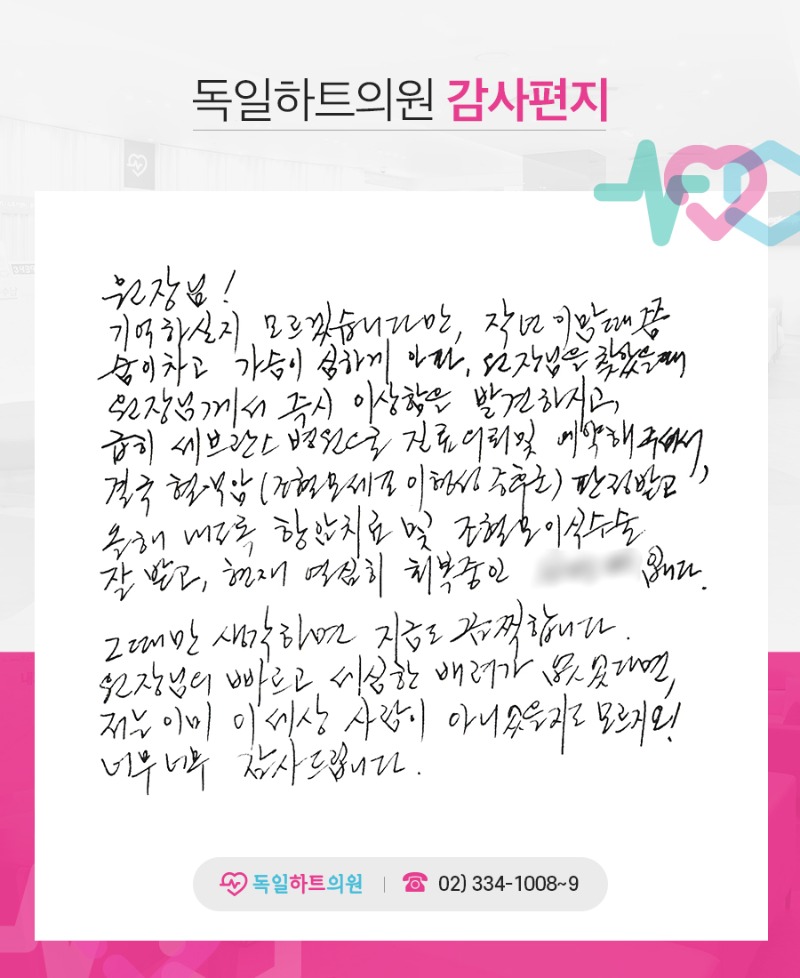 독일하트의원 감사편지
원장님!
기억하실지 모르겠습니다만, 작년 이맘때쯤
숨이차고 가슴이 심하게 아파, 원장님을 찾았을때
원장님께서 즉시 이상함을 발견하시고,
급히 세브란스 병원으로 진료의뢰및 예약해주셔서,
결국 혈액암 (조혈모세포 이형성 증후군) 판정받고
올해 내도록 항암치료 및 조혈모이식수술
잘 받고, 현재 열심히 회복중인 입니다.
그때만 생각하면 지금도 끔찍합니다.
원장님의 빠르고 세심한 배려가 없었다면,
저는 이미 이 세상 사람이 아니었을지도 모르지요!
너무너무 감사드립니다.
독일하트의원 | 02) 334-1008~9